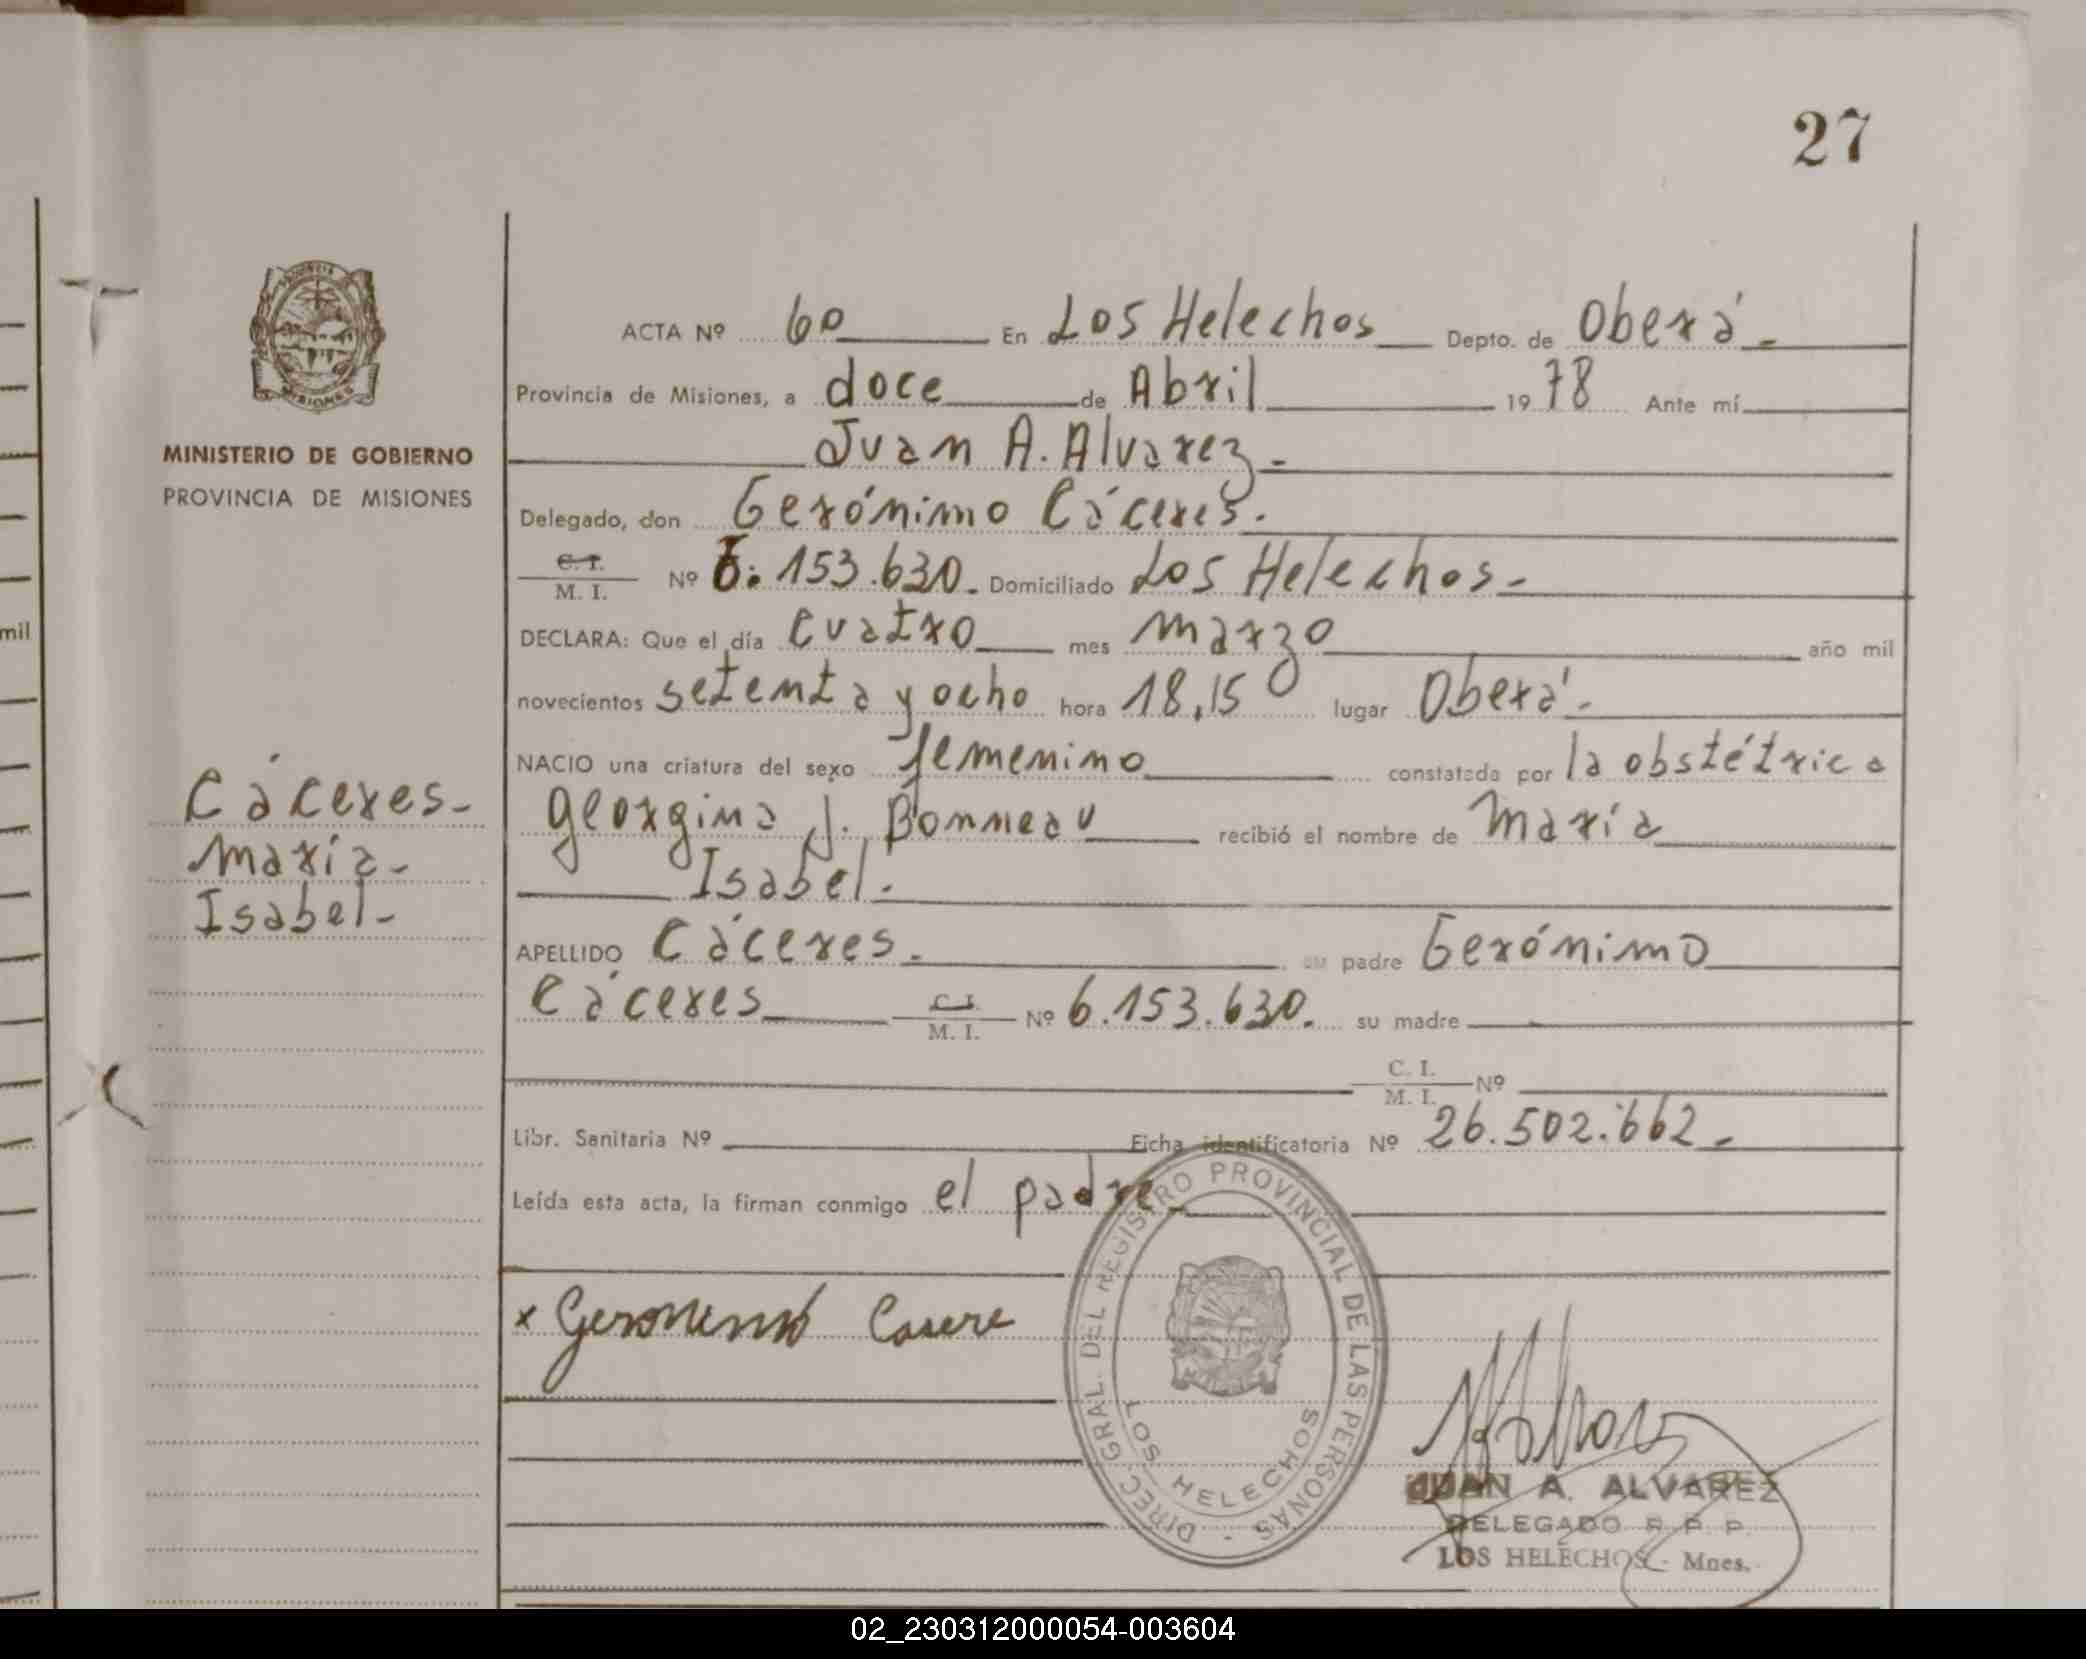 27
MINISTERIO DE GOBIERNO
PROVINCIA DE MISIONES
Cáceres-
María-
Isabel-
ACTA Nº 60 En Los Helechos Depto. de Oberá-
Provincia de Misiones, a doce de Abril 1978 Ante mí
Juan A. Alvarez-
Delegado, don Gerónimo Cáceres.
C. I.
M. I. Nº 6.153.630. Domiciliado Los Helechos-
DECLARA: Que el día cuatro mes marzo año mil
novecientos setenta y ocho hora 18,15 lugar Oberá-
NACIO una criatura del sexo femenino constatada por la obstétrica
Georgina J. Bonneau recibió el nombre de María
Isabel-
APELLIDO Cáceres. su padre Gerónimo
Cáceres C. I.
M. I. Nº 6.153.630. su madre
C. I.
M. I. Nº
Libr. Sanitaria Nº Ficha identificatoria Nº 26.502.662-
Leída esta acta, la firman conmigo el padre
x Geronimo Casere
DIREC. GRAL. DEL REGISTRO PROVINCIAL DE LAS PERSONAS -
LOS HELECHOS
JUAN A. ALVAREZ
DELEGADO R P P
LOS HELECHOS - Mnes.
mil
MISIONES
02_230312000054-003604